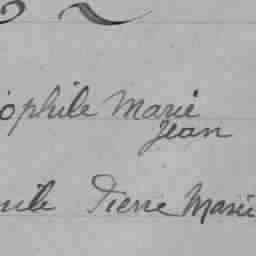 ophile Marie
Jean
Pierre Marie